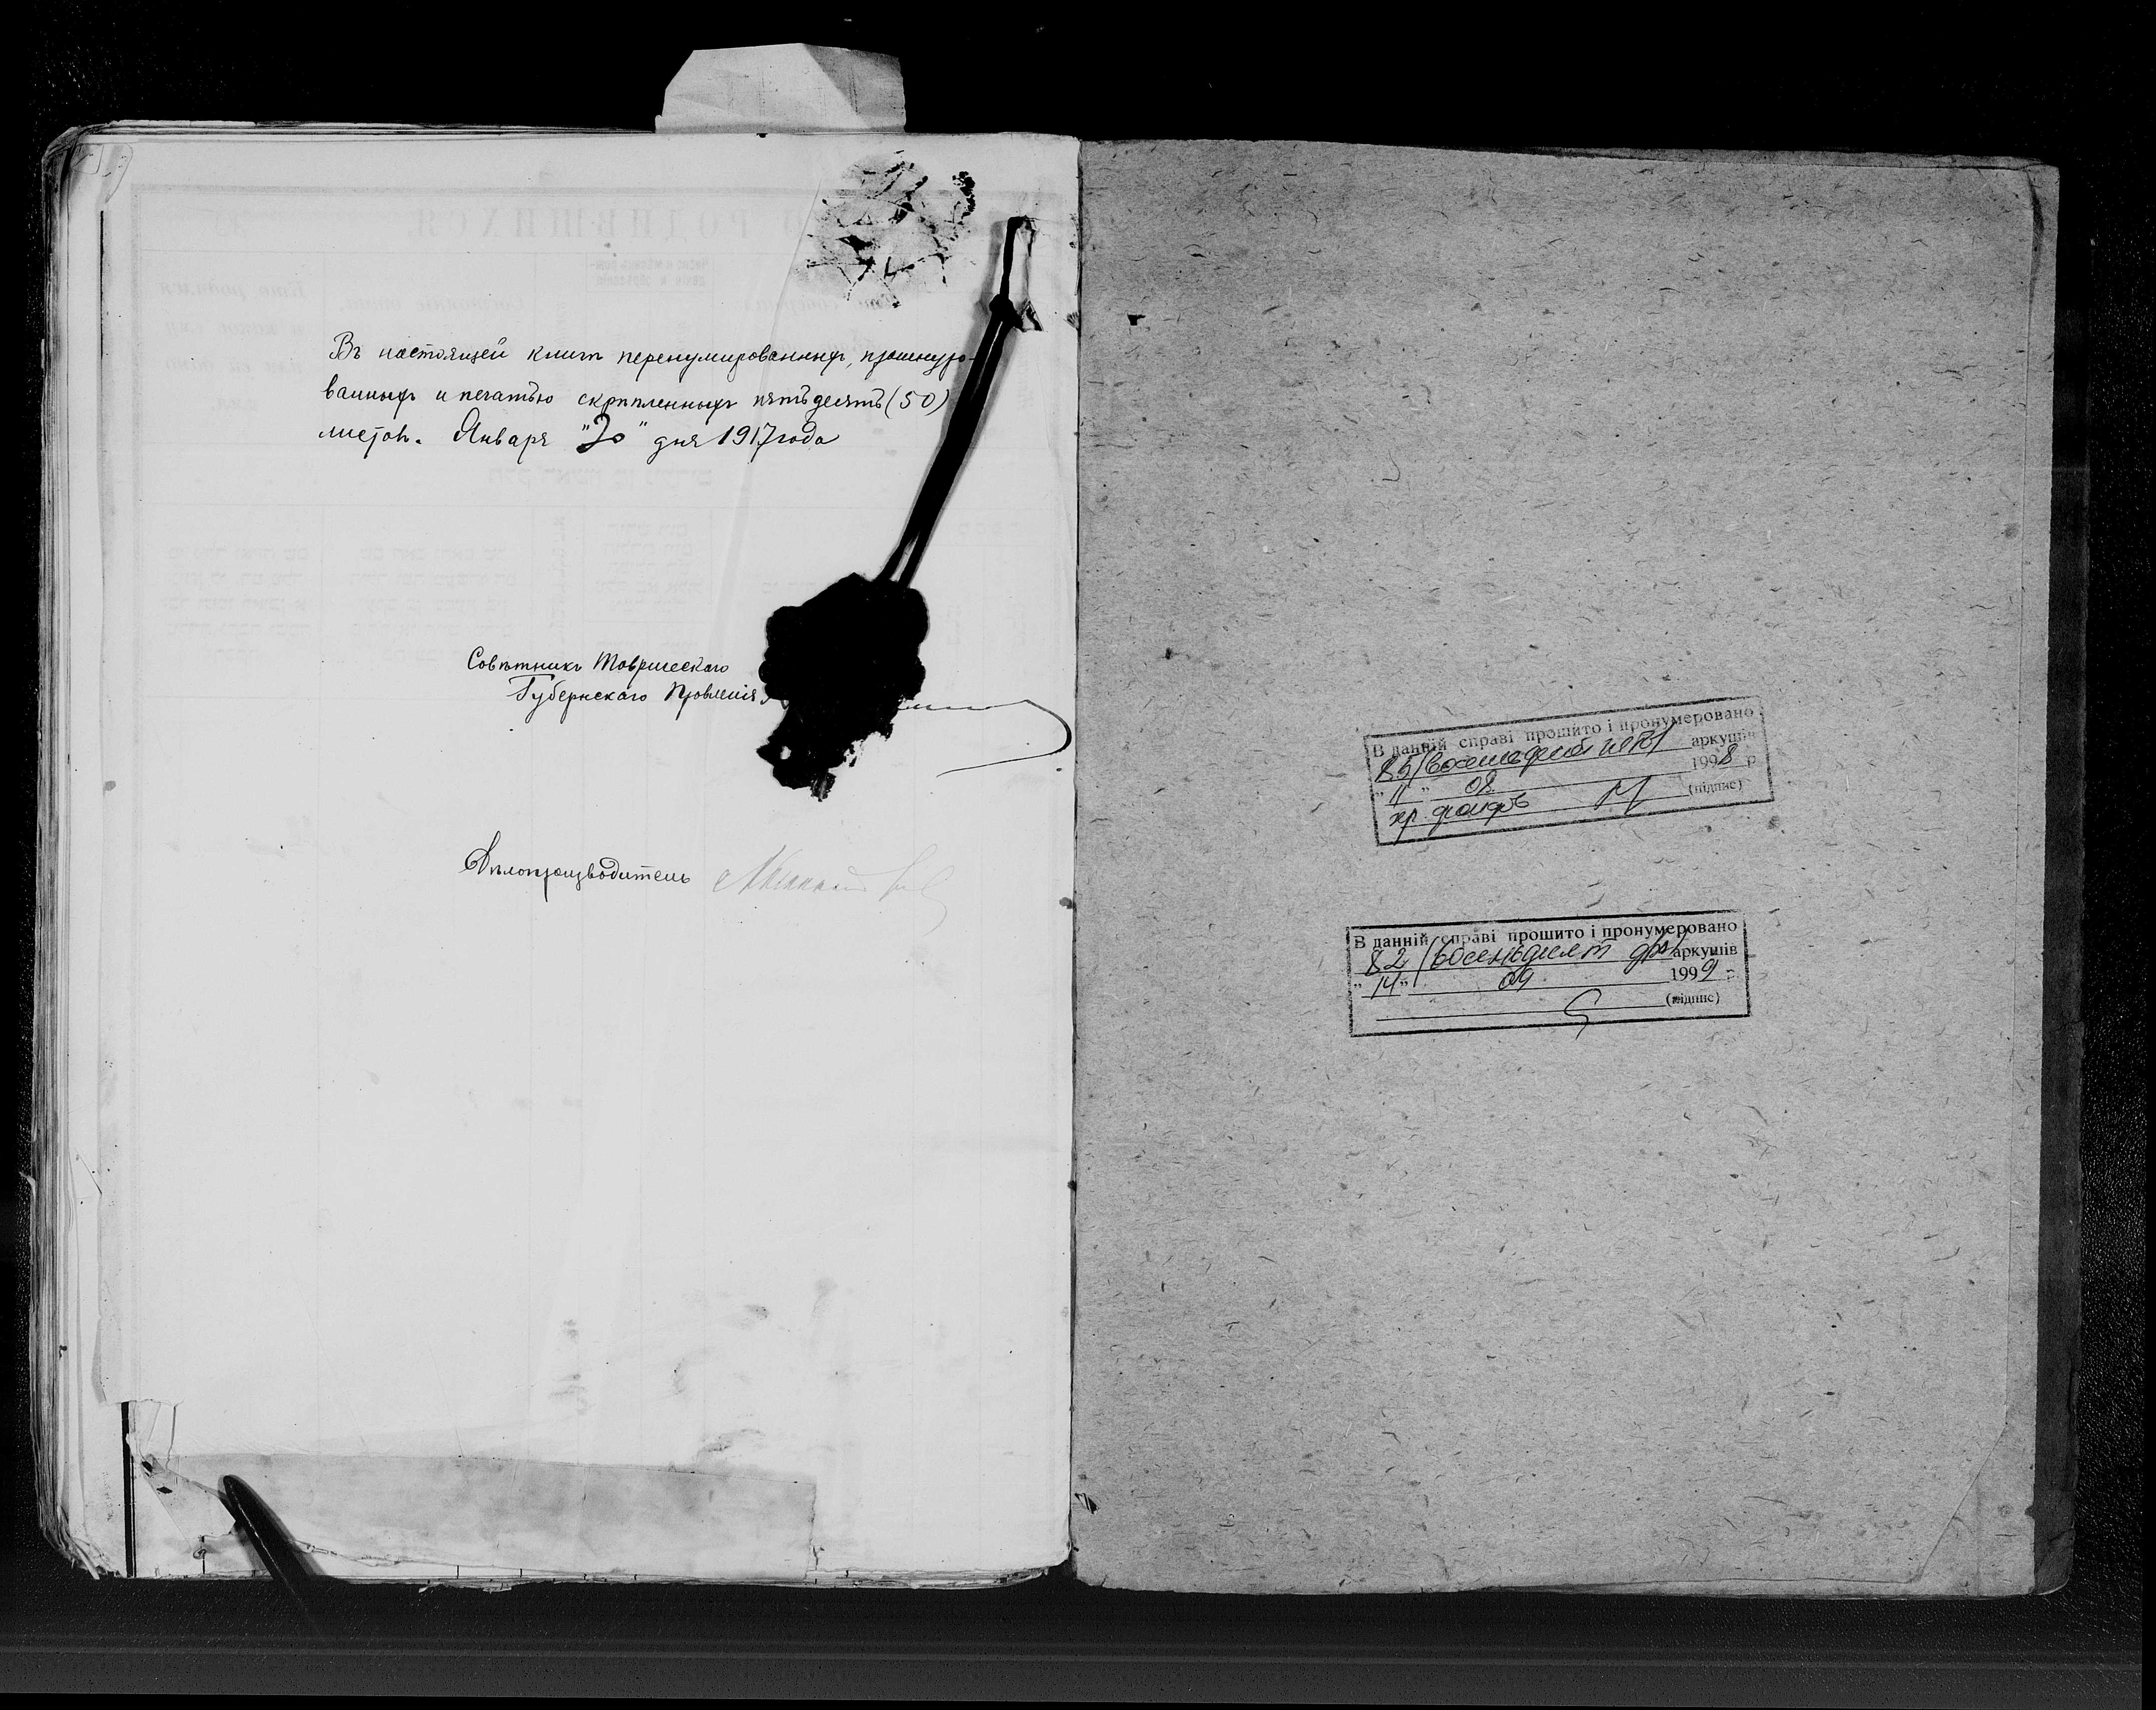 Въ настоящей книгѣ перенумерованныхъ, прошнуро-
ванныхъ и печатью скрѣпленныхъ пятьдесятъ (50)
листовъ. Января "20" дня 1917 года
Совѣтникъ Таврическаго
Губернскаго Правленія
Дѣлопроизводитель
В данній справі прошито і пронумеровано
85 (восемьдесят пять) аркушів
" 11 " 08 1998 р
хр. фондів (підпис)
В данній справі прошито і пронумеровано
82 (восемьдесят два) аркушів
" 14 " 09 1999 р
(підпис)